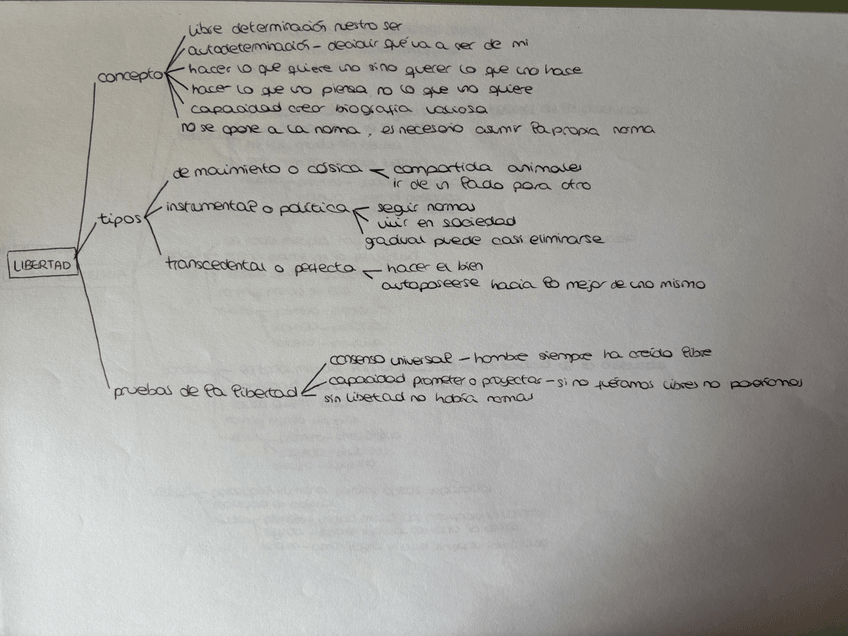 libre determinación nestro ser
autodeterminación - decidir qué va a ser de mi
concepto
hacer lo que quiere uno sino querer lo que uno hace
hacer lo que uno piensa no lo que uno quiere
capacidad creor biografía valiosa
no se opone a la norma, es necesario asumir la propia norma
de moimiento o cósica
compartida animales
ir de un lado para otro
tipos
instrumental o política
seguir normas
vivir en sociedad
gradual puede casi eliminarse
LIBERTAD
transcedental o perfecta
hacer el bien
autoposeerse hacia lo mejor de uno mismo
consenso universal - hombre siempre ha creído libre
pruebas de la libertad
capacidad prometer o proyectar - si no fuéramos libres no podríamos
sin libetad no habría normas